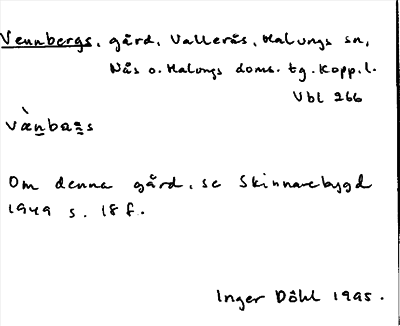 Vennbergs, gård, Vallerås, Malungs sn,
Nås o. Malungs doms. tg. Kopp. l.
Vbl 266
væ̀nbaṣs
Om denna gård, se Skinnarebygd
1949 s. 18 f.
Inger Döhl 1995.